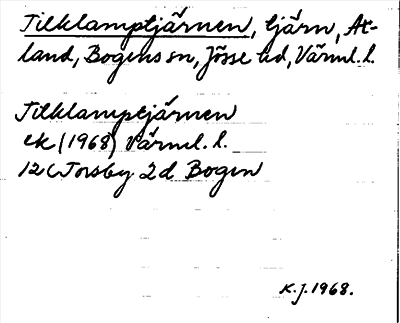 Tilklamptjärnen, tjärn, Åt-
land, Bogens sn, Jösse hd, Värml. l.
Tilklamptjärnen
ek (1968) Värml. l.
12C Torsby 2d Bogen
K.J. 1968.